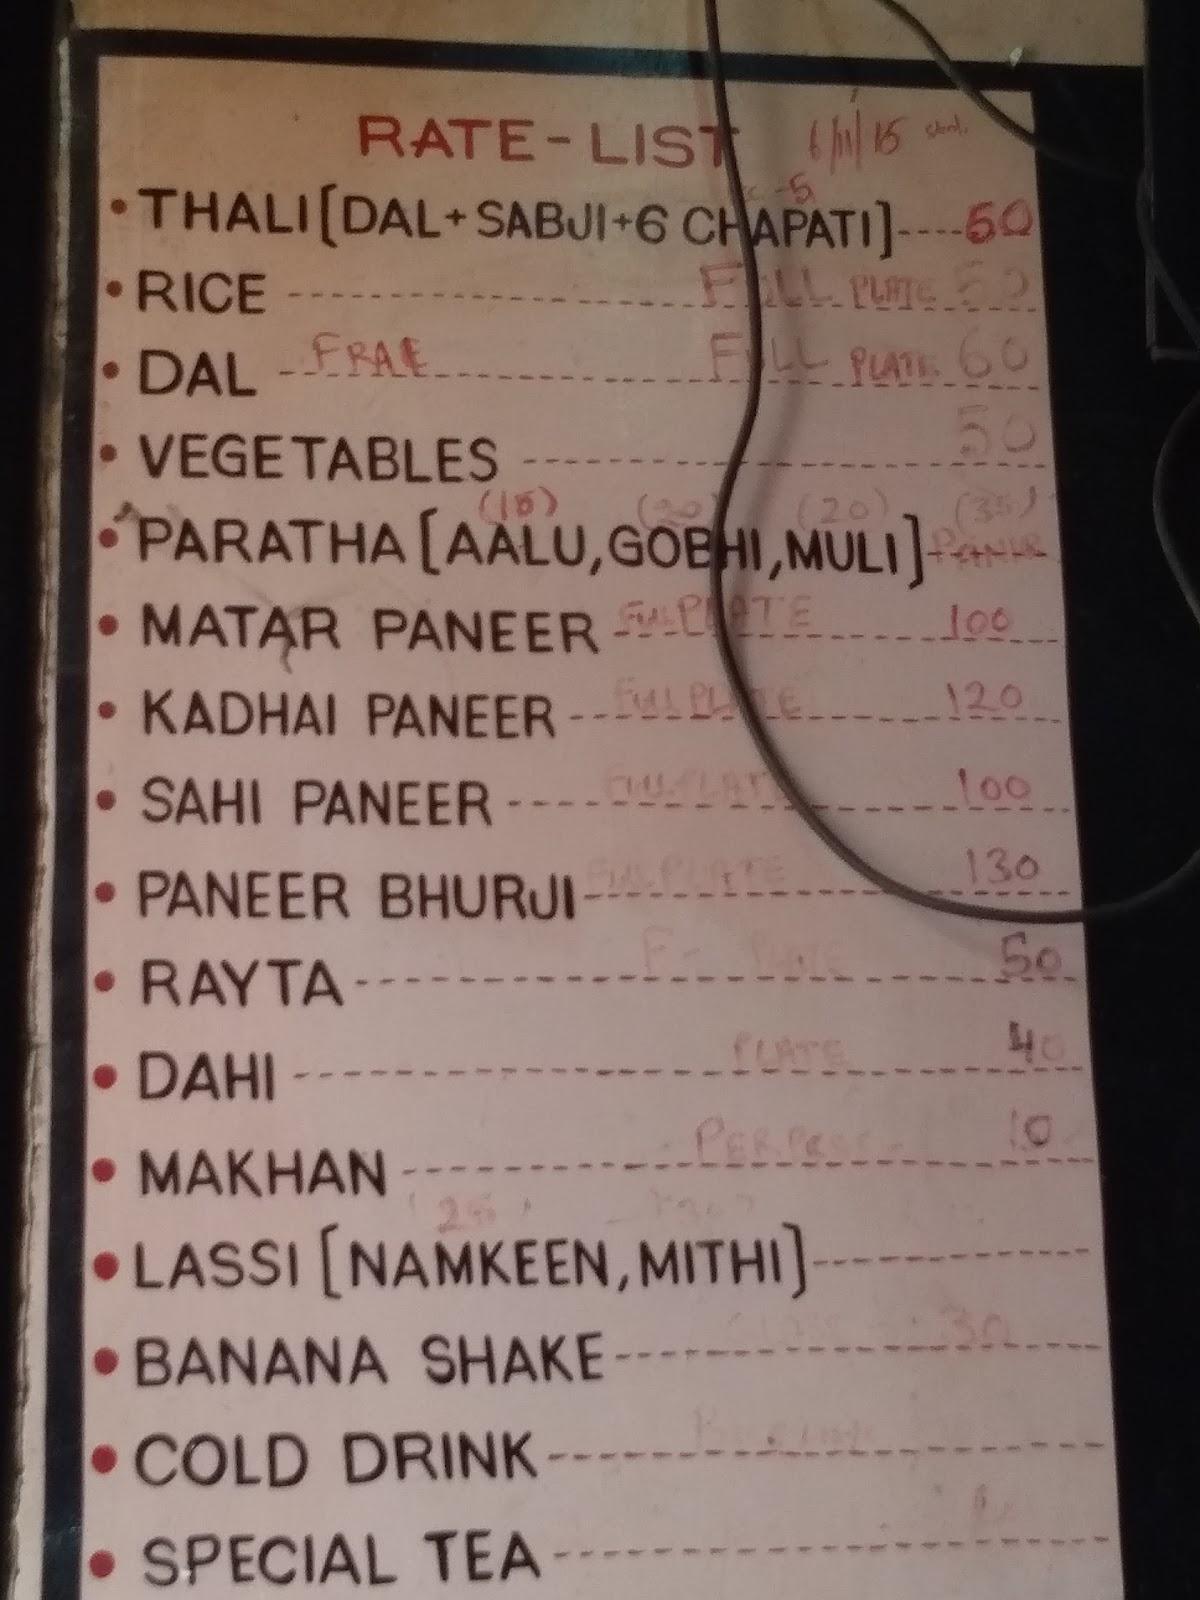 RATE-LIST 6/11/15
-5
• THALI [DAL+SABJI+6 CHAPATI]----50
• RICE -------------------- FULL PLATE 50
• DAL - FRAE ------------ FULL PLATE 60
• VEGETABLES -------------------- 50
(15) (20) (20) (35)
• PARATHA [AALU, GOBHI, MULI] PANIR
• MATAR PANEER --- FULPLATE ------ 100
• KADHAI PANEER --- FULPLATE ------ 120
• SAHI PANEER ---- FULPLATE ------ 100
• PANEER BHURJI FULPLATE ------ 130
• RAYTA --------------- F- PLATE ------ 50
• DAHI ---------------- PLATE ------ 40
• MAKHAN ------------- PER ------ 10
(25) (30)
• LASSI [NAMKEEN, MITHI] ------------
• BANANA SHAKE ------------ 30
• COLD DRINK --------------------
• SPECIAL TEA --------------------